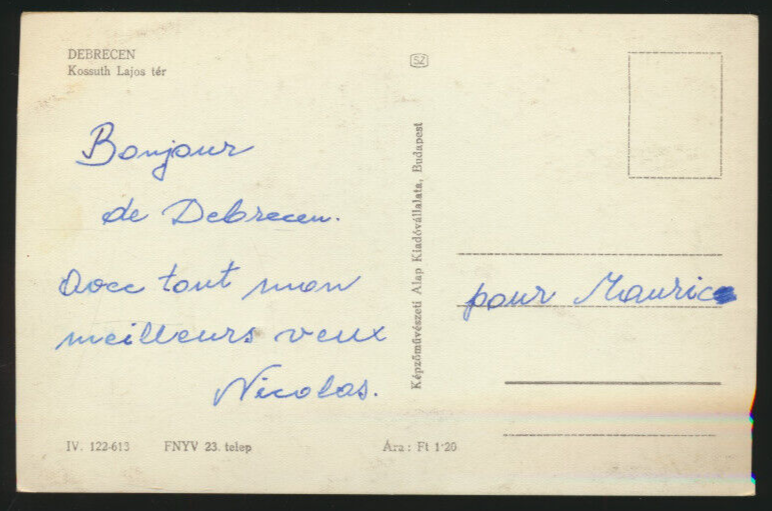 DEBRECEN
Kossuth Lajos tér
SZ
Bonjour
de Debrecen.
avec tout mon
meilleurs veux
Nicolas.
Képzőművészeti Alap Kiadóvállalata, Budapest
pour Maurice
IV. 122-613 FNYV 23. telep Ára: Ft 1·20